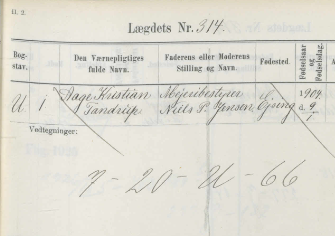 H. 2.
Lægdets Nr. 314.
Bog-
stav. Den Værnepligtiges
fulde Navn. Faderens eller Moderens
Stilling og Navn. Fødested. Fødselsaar
og
Fødselsdag.
U 1 Aage Kristian
Tandrup Mejeribestyrer
Niels P. Jensen Ejsing 1904
9
Vedtegninger.
7-20-U-66